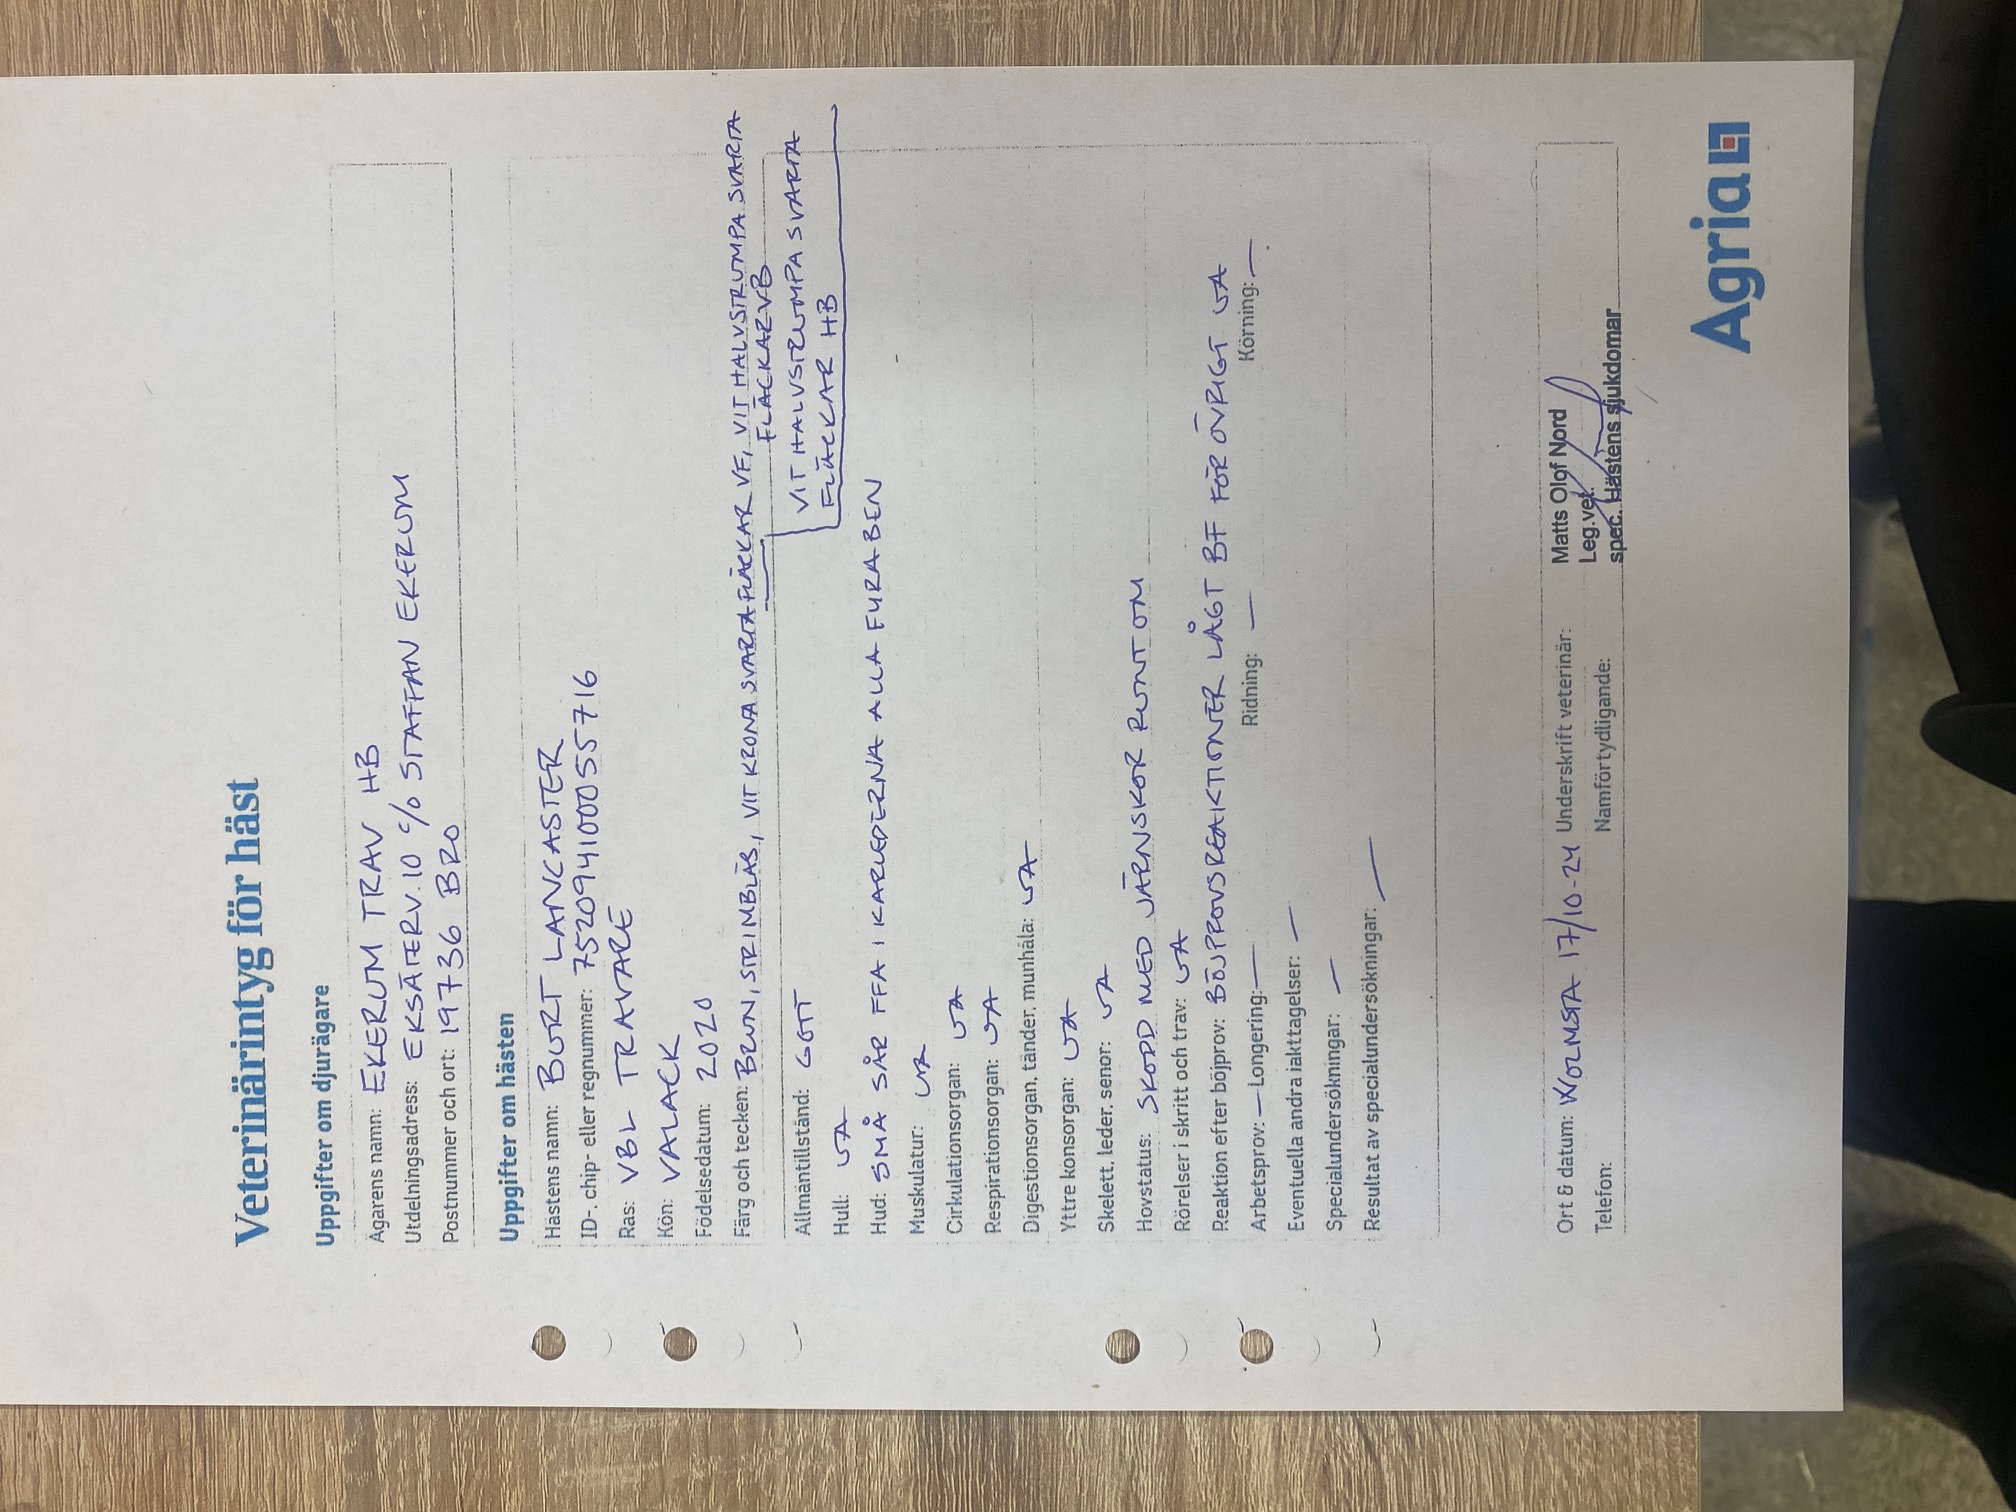 Veterinärintyg för häst
Uppgifter om djurägare
Ägarens namn: EKERUM TRAV HB
Utdelningsadress: EKSÄTERV.10 c/o STAFFAN EKERUM
Postnummer och ort: 19736 BRO
Uppgifter om hästen
Hästens namn: BURT LANCASTER
ID-, chip- eller regnummer: 752094100055716
Ras: VBL TRAVARE
Kön: VALACK
Födelsedatum: 2020
Färg och tecken: BRUN, STRIMBLÄS, VIT KRONA SVARTA FLÄCKAR VF, VIT HALVSTRUMPA SVARTA
FLÄCKAR VB
VIT HALVSTRUMPA SVARTA
FLÄCKAR HB
Allmäntillstånd: GOTT
Hull: UA
Hud: SMÅ SÅR FFA I KARLEDERNA ALLA FYRA BEN
Muskulatur: UA
Cirkulationsorgan: UA
Respirationsorgan: UA
Digestionsorgan, tänder, munhåla: UA
Yttre könsorgan: UA
Skelett, leder, senor: UA
Hovstatus: SKODD MED JÄRNSKOR RUNT OM
Rörelser i skritt och trav: UA
Reaktion efter böjprov: BÖJPROVSREAKTIONER LÅGT BF FÖR ÖVRIGT UA
Arbetsprov: — Longering: — Ridning: — Körning: —
Eventuella andra iakttagelser: —
Specialundersökningar: —
Resultat av specialundersökningar: —
Ort & datum: WOLMSTA 17/10-24 Underskrift veterinär: Matts Olof Nord
Leg.vet.
Telefon: Namnförtydligande: spec. Hästens sjukdomar
Agria